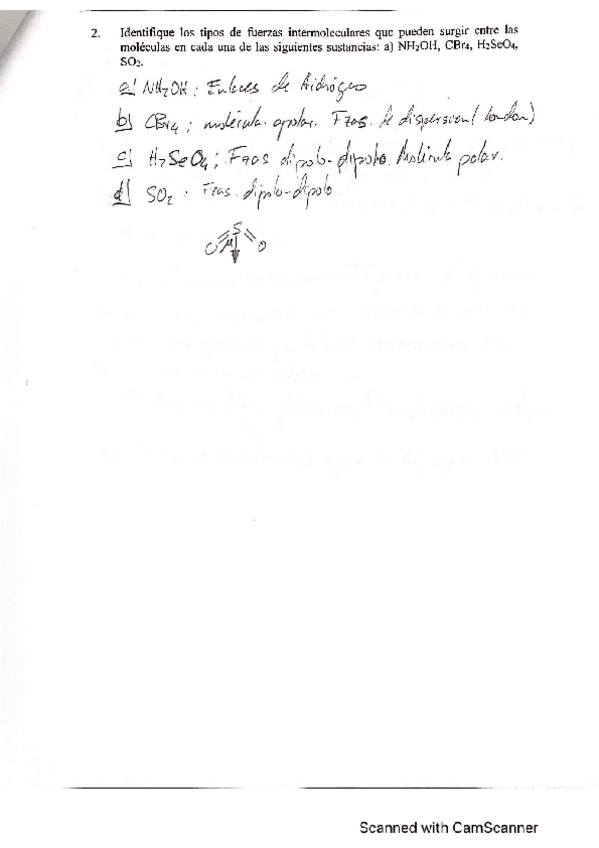 2. Identifique los tipos de fuerzas intermoleculares que pueden surgir entre las
moléculas en cada una de las siguientes sustancias: a) NH₂OH, CBr₄, H₂SeO₄,
SO₂.
a) NH₂OH: Enlaces de hidrógeno
b) CBr₄; molécula apolar. Fzas. de dispersion (London)
c) H₂SeO₄; Fzas dipolo-dipolo. Molécula polar.
d) SO₂: Fzas. dipolo-dipolo.
S
O μ O
Scanned with CamScanner